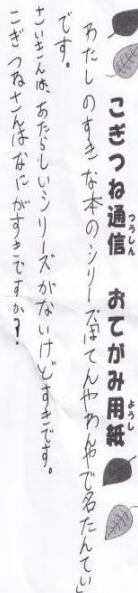 こぎつね通信 おてがみ用紙
つうしん ようし
わたしのすきな本のシリーズはてんやわんやで名たんてい
です。
さいきんは、あたらしいシリーズがないけどすきです。
こぎつねさんはなにがすきですか?